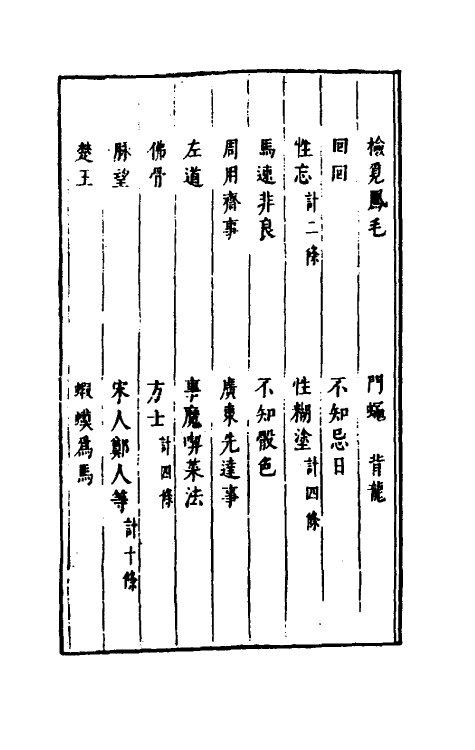 檢覓鳳毛
門蠅 背龍
囘囘
不知忌日
性忘計二條
性糊塗計四條
馬速非良
不知骰色
周用齋事
廣東先達事
左道
事魔喫菜法
佛骨
方士計四條
脉望
宋人鄭人等計十條
楚王
蝦蟆爲馬